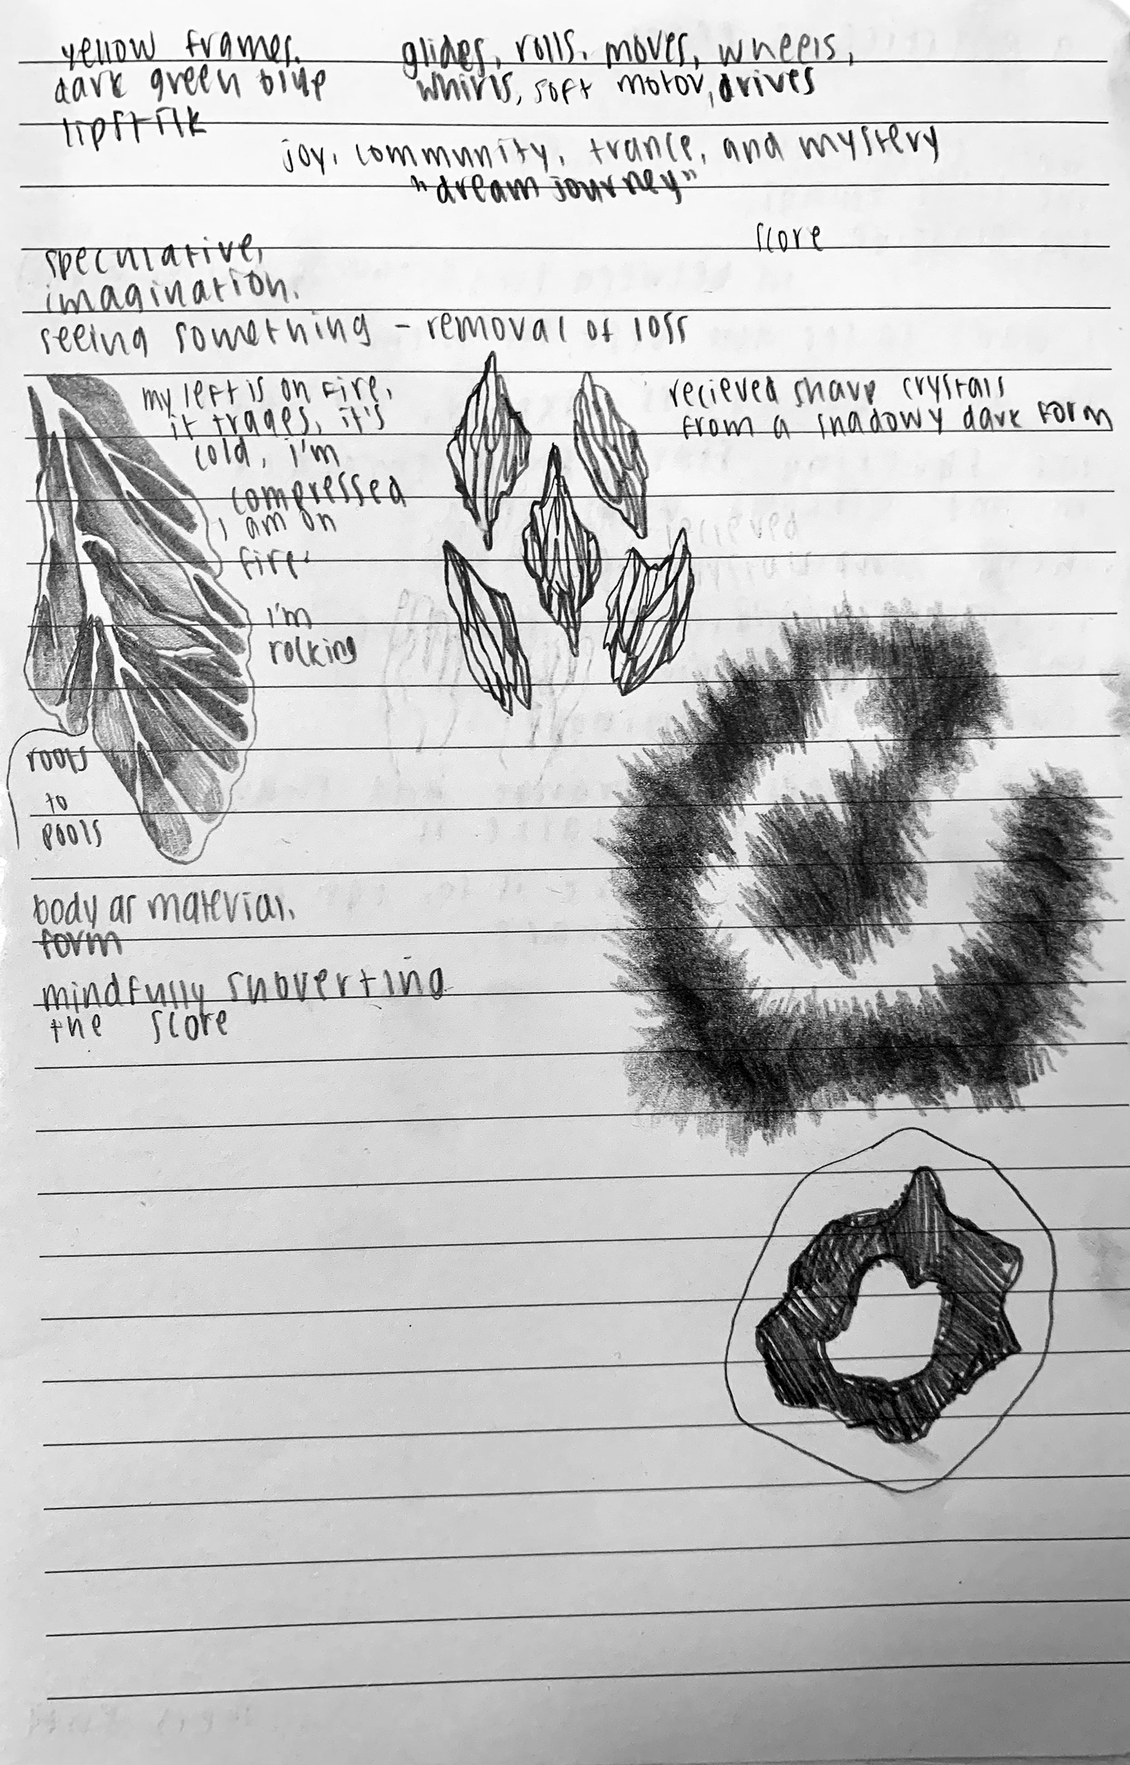 yellow frames.
dark green blue
lipstick
glides, rolls, moves, wheels,
whirls, soft motor, drives
joy, community, trance, and mystery
"dream journey"
score
speculative,
imagination.
seeing something - removal of loss
my left is on fire,
it trages, it's
cold, i'm
compressed
i am on
fire.
i'm
rocking
recieved sharp crystals
from a shadowy dark form
roots
to
pools
body as material.
form
mindfully subverting
the score